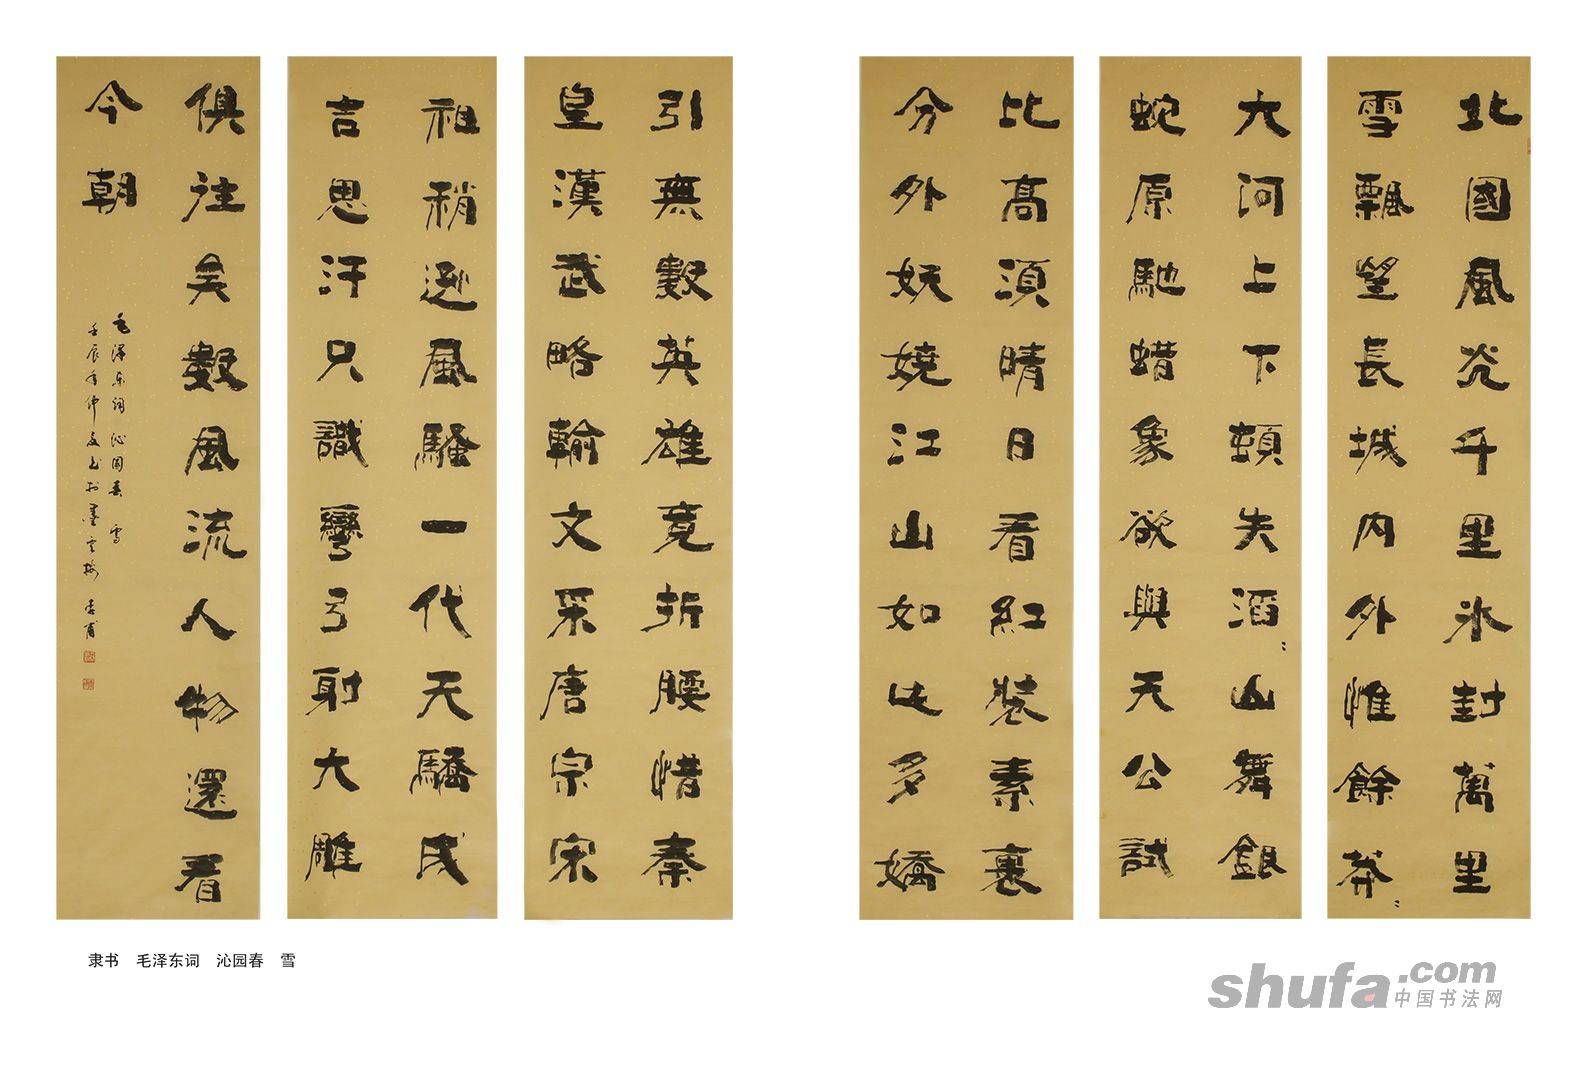 北國風光千里氷封萬里
雪飄望長城內外惟餘莽〻
大河上下頓失滔〻山舞銀
蛇原馳蜡象欲與天公試
比高須晴日看紅裝素裹
分外妖嬈江山如此多嬌
引無數英雄竟折腰惜秦
皇漢武略輸文采唐宗宋
祖稍遜風騷一代天驕成
吉思汗只識彎弓射大雕
俱往矣數風流人物還看
今朝
毛澤东词沁園春 雪
壬辰年仲夏书於墨雲楼
隶书 毛泽东词 沁园春 雪
shufa.com
中国书法网